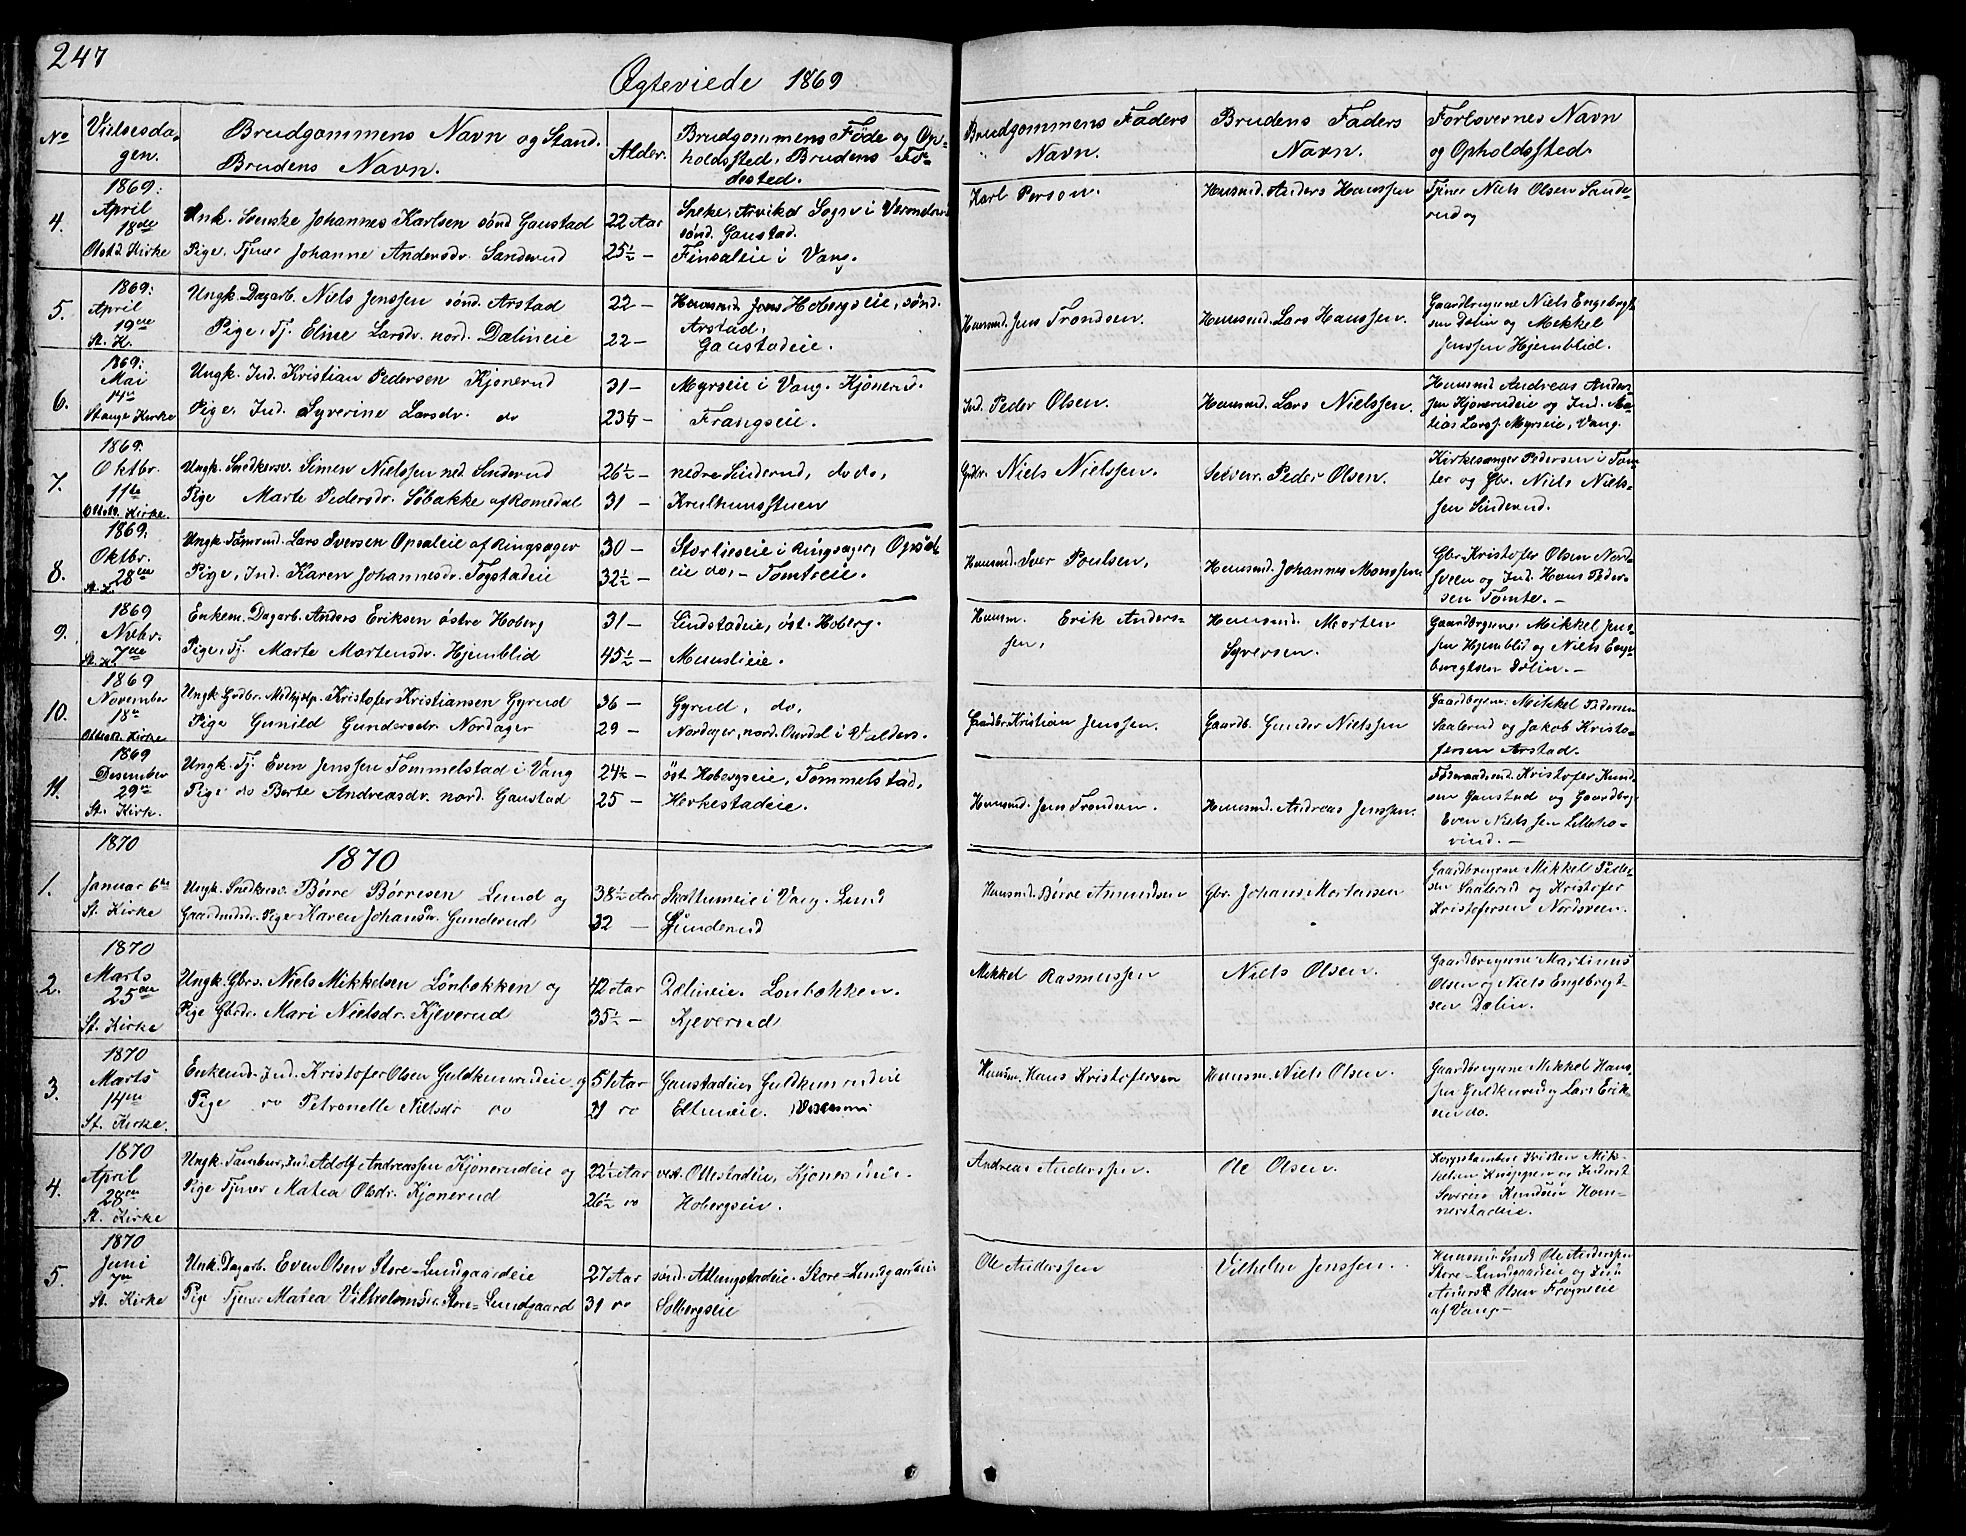 247
Ægteviede 1869
No Vielsesda-gen. Brudgommens Navn og Stand. Brudens Navn. Alder. Brudgommens Føde og Op-holdssted, Brudens Fø-dested. Brudgommens Faders Navn. Brudens Faders Navn. Forlovernes Navn og Opholdssted.
4. 1869: April 18de Otst. Kirke
Unk. Svenske Johannes Karlsen sønd Gaustad 22 Aar
Pige, Tjener Johanne Andersdr. Sanderud 25½ —
Arvika Sogn i
sønd. Gaustad.
Finsaleie i Vang.
Karl Person.
Huusmd. Anders Hanssen
Tjener Niels Olsen Sande-
rud og
5. 1869: April 19de St. K.
Ungk. Dagarb. Niels Jenssen sønd. Arstad 22 —
Pige, Tj. Eline Larsdr. nord. Dælineie 22 —
Huusmd. Jens Hobergseie, sønd.
Arstad,
Gaustadeie.
Huusmd. Jens Trondsen.
Huusmd. Lars Hanssen.
Gaardbrugerne Niels Engebregt-
sen Dælin og Mikkel
Jenssen Hjemblid.
6. 1869: Mai 14de Stange Kirke
Ungk. Ind. Kristian Pedersen Kjonerud 31 —
Pige, Ind. Syverine Larsdr. do
Myrseie i Vang. Kjonerud.
Frangseie.
Ind. Peder Olsen.
Huusmd. Lars Nielssen.
Huusmd Andreas Ander-
sen Kjonerudeie og Ind.
Larss. Myrseie, Vang.
7. 1869. Oktbr. 11te Ottest. Kirke.
Ungk. Snedkersv. Simen Nielssen ned. Sinderud 26½ —
Pige Marte Pedersdr. Søbakke af Romedal 31 —
nedre Sinderud, do do,
Krulhuusstuen
Gbr. Niels Nielssen.
Selveier. Peder Olsen.
Kirkesanger Pedersen i Tom-
ter og Gbr. Niels Niels-
sen Sinderud.
8. 1869. Oktbr. 28de St. K.
Ungk. Tømmd. Lars Iversen Opsaleie af Ringsager 30 —
Pige, Ind. Karen Johannesdr. Fogstadeie 32½ —
Storlieseie i Ringsager, Opsal-
eie do, — Tomtreie.
Huusmd. Iver Poulsen,
Huusmd. Johannes Monssen
Gbr. Kristofer Olsen Nord-
sveen og Ind. Hans Peder-
sen Tomte. —
9. 1869 Nvbr. 7de St. K.
Enkem. Dagarb. Anders Eriksen østre Hoberg 31 —
Pige, Tj. Marte Mortensdr. Hjemblid 45½ —
Lindstadeie, øst. Hoberg.
Muuslieie.
Huusm. Erik Anders-
sen,
Huusmd. Morten
Syversen.
Gaardbrugerne Mikkel Jens-
sen Hjemblid og Niels Enge-
bregtsen Dælin. —
10. 1869 November 18de Ottest. Kirke
Ungk. Grdbr. Medhjelp. Kristofer Kristiansen Gyrud 36 —
Pige Gunild Gundersdr. Nordager 29 —
Gyrud, do,
Nordager, nord. Ourdal i Valders.
Gaardbr. Kristian Jenssen.
Gaardb. Gunder Nielssen
Gaardbrugerne Mikkel Pedersen
Saalerud og Jakob Kristo-
fersen Arstad.
11. 1869 Desember 29de St. Kirk.
Ungk. Tj. Even Jenssen Tommelstad i Vang 24½ —
Pige do Berte Andreasdr. nord. Gaustad 25 —
øst. Hobergseie, Tommelstad,
Herkestadeie.
Huusmd. Jens Trondsen.
Huusmd. Andreas Jenssen.
Føderaadsmd. Kristofer Knud-
sen Gaustad og Gaardbrug.
Even Nielssen Lilleho-
vind. —
1870
1. 1870 Januar 6te St. Kirke
Ungk. Snedkersv. Børre Børresen Lund og 38½ Aar
Gaardmdsdr. Pige Karen Johansdr. Gunderud 32 —
Skattumeie i Vang. Lund
Gunderud
Huusmd. Børre Amundsen
Gbr. Johans Mortensen
Gaardbrugerne Mikkel Peder-
sen Saalerud og Kristofer
Kristofersen Nordsveen.
2. 1870 Marts 25de St. Kirke
Ungk. Gbrs. Niels Mikkelsen Lønbakken og 42 Aar
Pige Gbrdr. Mari Nielsdr. Kjeverud 35½ —
Dælineie. Lønbakken.
Kjeverud
Mikkel Rasmussen
Niels Olsen.
Gaardbrugerne Martinus
Olsen og Niels Engebregt-
sen Dælin.
3. 1870 Marts 14de St. Kirke.
Enkemd. Ind. Kristofer Olsen Guldkunrudeie, og 51 Aar
Pige do Petronelle Nielsdr do
Gaustadeie, Guldkunrudeie
Eltuneie.
Huusm. Hans Kristofersen
Huusm. Niels Olsen.
Gaardbrugerne Mikkel Hans-
sen Guldkunrud og Lars Erik-
sen do.
4. 1870 April 28de St. Kirke
Ungk. Tambur, Ind. Adolf Andreassen Kjonerudeie og 22½ Aar
Pige Tjener Matea Olsdr. Kjonerud 26½ do
vest. Ottestadeie, Kjonerudeie.
Hobergseie.
Andreas Anderssen.
Ole Olsen.
Korpstambur Kristen Mik-
kelsen og Inderst
Severin Knudsen Hom-
nerstadeie.
5. 1870 Juni 7de St. Kirke
Unk. Dagarb. Even Olsen Store-Lundgaardeie 27 Aar
Pige Tjener Matea Vilhelmsdr. Store-Lundgaard 31 do
sønd. Allungstadeie. Store-Lundgaardeie
Solbergseie
Ole Anderssen
Vilhelm Jenssen.
Huusmd. Smed Ole Anderssen
Store-Lundgaardeie og Ind.
Anders Olsen Frogneie
af Vang —